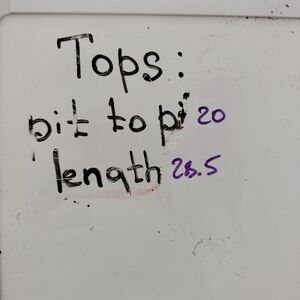 Tops:
pit to pi 20
length 28.5